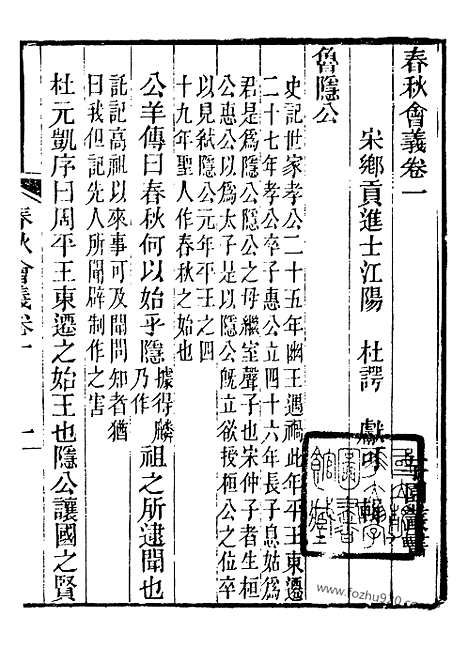 春秋會義卷一
宋鄉貢進士江陽 杜諤 獻可
魯隱公
史記世家孝公二十五年幽王遇禍此年平王東遷
二十七年孝公卒子惠公立四十六年長子息姑爲
君是爲隱公隱公之母繼室聲子也宋仲子者生桓
公惠公以爲太子是以隱公旣立欲授桓公之位卒
以見弒隱公元年平王之四
十九年聖人作春秋之始也
公羊傳曰春秋何以始乎隱據得麟乃作祖之所逮聞也
託記高祖以來事可及聞問知者猶
曰我但記先人所聞辟制作之害
杜元凱序曰周平王東遷之始王也隱公讓國之賢
春秋會義卷一 一
www.fozhu920.com